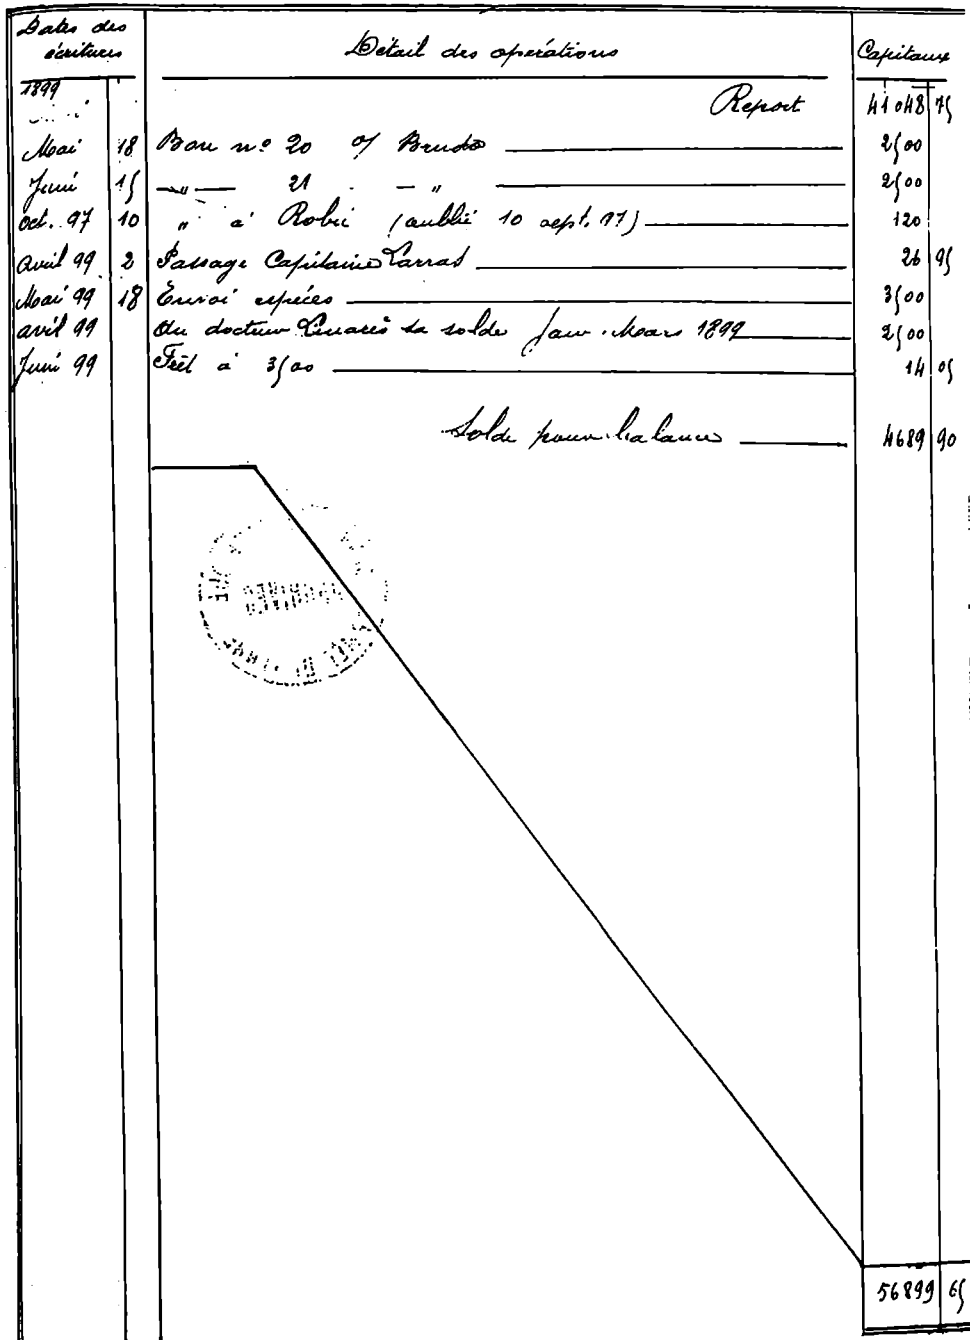 Dates des écritures | Détail des opérations | Capitaux
1899 | Report | 41048 75
Mai 18 | Bon nº 20 o/ Brudo | 2500
Juin 15 | — " — 21 — " | 2500
oct. 97 10 | " à Robic (oublié 10 sept. 97) | 120
Avril 99 2 | Passage Capitaine Larras | 26 95
Mai 99 18 | Envoi espéces | 3500
avril 99 | Au docteur Linarès sa solde Janv. Mars 1899 | 2500
Juin 99 | Frêt à 3500 | 14 05
Solde pour balance | 4689 90
56899 65